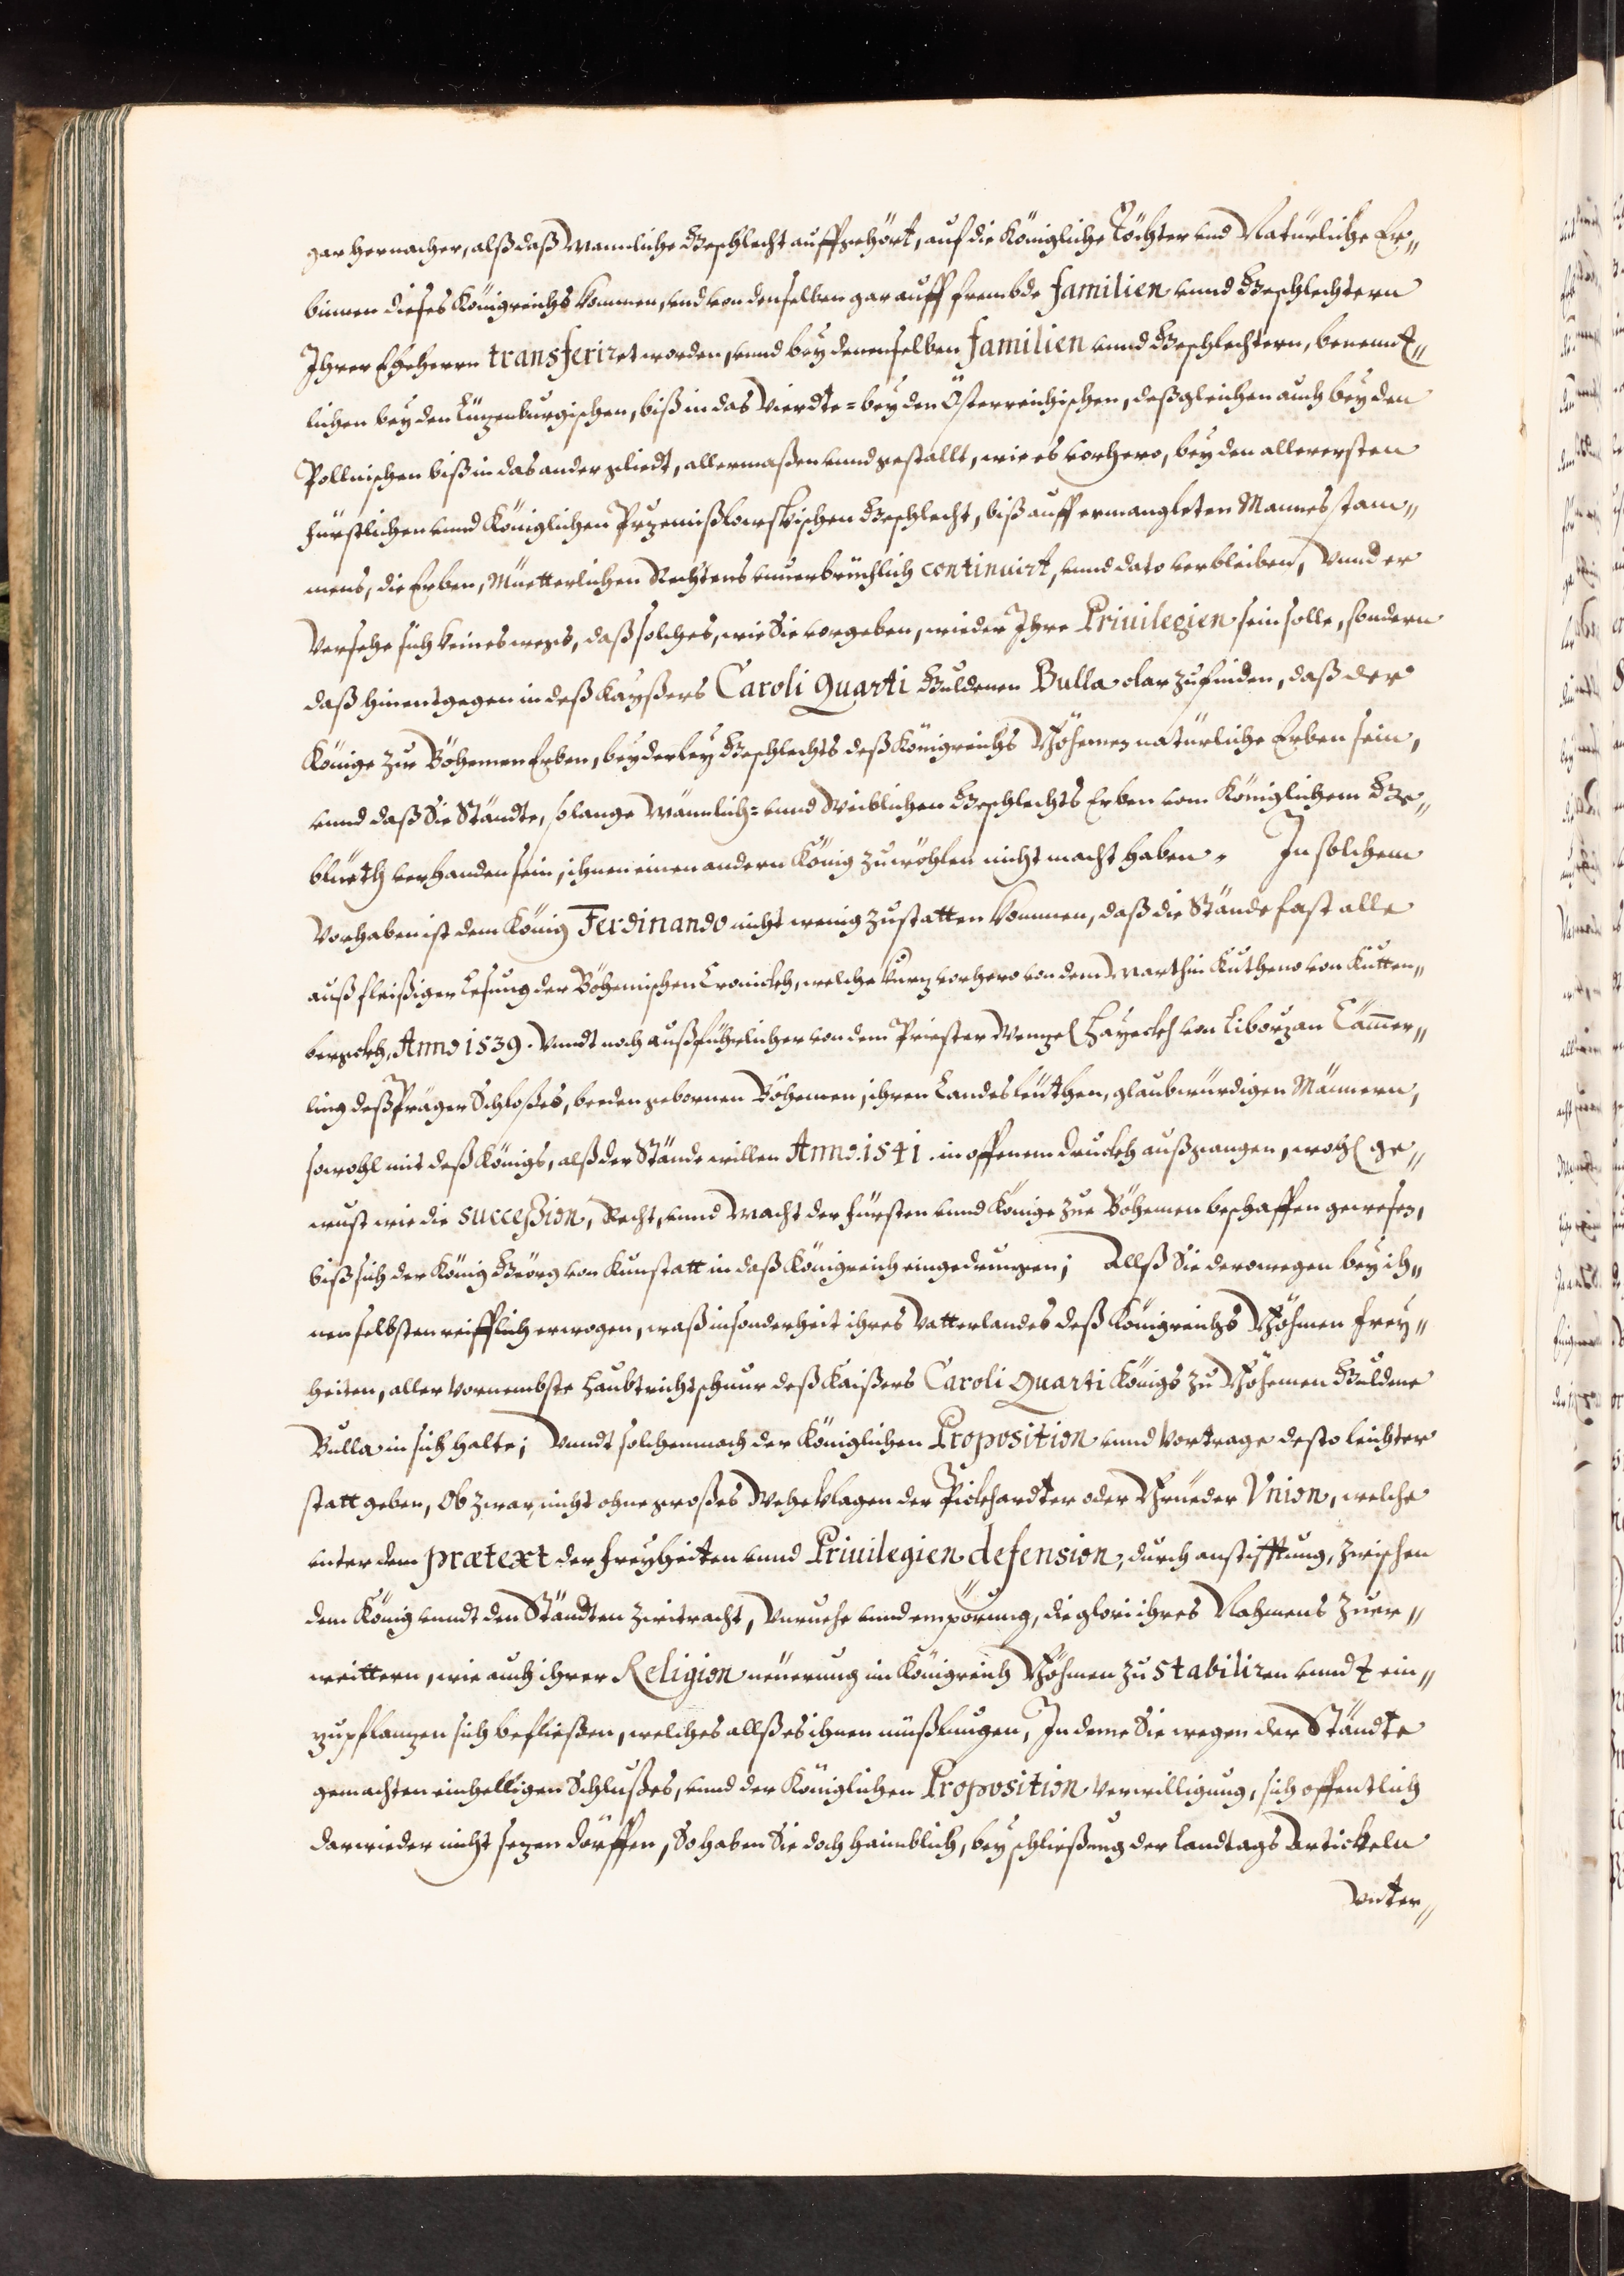 gar hernacher, alß daß Mannliche Geschlecht auffgehört, auf die Königliche Töchter und Natürliche Er„
binnen dieses Königreichs kommen, und von denselben gar auff frembde familien unnd Geschlechtern
Ihrer Eheherrn transferiret worden, unnd bey denenselben familien unnd Geschlechtern, benendt„
lichen bey den Lützenburgischen, biß in das Vierdte= bey den Österreichischen, deßgleichen auch bey den
Pollnischen biß in das ander gliedt, allermaßen unnd gestallt, wie es vorhero, bey den allerersten
fürstlichen unnd Königlichen Przemißlowskischen Geschlecht, biß auff ermangleten Mannesstam„
mens, die Erben, Müetterlichen Rechtens unverbrüchlich continuirt, unnd dato verbleiben, Unnd er
Versehe sich keineswegs, daß solches, wie Sie vorgeben, wieder Ihre Priuilegien sein solle, sondern
daß hinentgegen in deß Kayßers Caroli Quarti Guldenen Bulla clar zufinden, daß der
Könige zue Böhemen Erben, beyderley Geschlechts deß Königreichs Böhemen natürliche Erben sein,
unnd daß Sie Ständte, solange Männlich= unnd Weiblichen Geschlechts Erben vom Königlichem Ge„
blüeth verhanden sein, ihnen einen andern König zuwöhlen nicht macht haben. In solchem
Vorhaben ist dem König Ferdinando nicht wenig zustatten kommen, daß die Stände fast alle
auß fleißiger Lesung der Böhemischen Cronickh, welche kurz vorhero von dem Marthin Kutheno von Kutten„
bergckh, Anno 1539. Unndt noch außführlicher von dem Priester Wenzel Hayeckh von Liboczan Cämmer„
ling deß Präger Schloßes, beeden gebornen Böhemen, ihren Landesleüthen, glaubwürdigen Männern,
sowohl mit deß Königs, alß der Stände willen Anno. 1541. in offenem druckh außgangen, wohl ge„
wust wie die succession, Recht, unnd Macht der fürsten unnd Könige zue Böhemen beschaffen gewesen,
biß sich der König Geörg von Kunstatt in daß Königreich eingedrungen; Allß Sie derowegen bey ih„
nen selbsten reifflich erwogen, waß insonderheit ihres Vatterlandes deß Königreichs Böhmen frey„
heiten, aller vornembste haubtrichtschnur deß Kaißers Caroli Quarti Königs zu Böhemen Guldene
Bulla in sich halte; Unndt solchemnach der Königlichen Proposition unnd Vortrage desto leichter
statt geben, Ob zwar, nicht ohne großes Wehe klagen der Pickhardter oder Brüeder Vnion, welche
unter dem prætext der freyheitten unnd Priuilegien defension, durch anstifftung, zwischen
dem König unndt den Ständten zwitracht, Unruehe unnd empörung, die glori ihres Nahmens zu er„
weittern, wie auch ihrer Religion neüerung im Königreich Böhmen zu stabiliren unndt ein„
zupflanzen sich befließen, welches allß es ihnen müßlungen, Indeme Sie wegen der Ständte
gemachten einhelligen Schlußes, unnd der Königlichen Proposition verwilligung, sich offentlich
darwieder nicht sezen dörffen, So haben Sie doch haimblich, bey schließung der Landtags Artickeln
Unter„